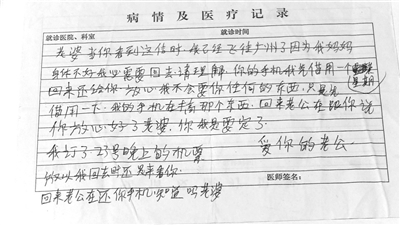 病情及医疗记录
就诊医院、科室 就诊时间
老婆当你看到这信时.我已经飞往广州了因为我妈妈
身体不好我必需要回去.请理解.你的手机我先借用一个星期
回来还给你.放心我不会要你任何的东西.只是先
借用一下.我的手机在搞那个东西.回来老公在跟你说
你放心.好了老婆.你我是要定了.
我订了23号晚上的机票 爱你的老公
所以我回去时还是来看你.
医师签名:
回来老公在还你手机.知道吗老婆